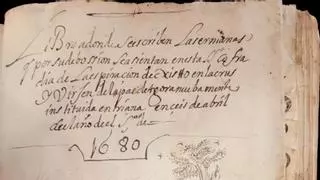 Libro adonde se escriben Las ermanas
q̃ por su debosion se asientan en esta S.ta Cofra
dia de La espirasion de Cristto en la crus
y Virjen de la pas de tora nueba mente
instituida en triana en ceis de abril
del año de el S.or de
1680